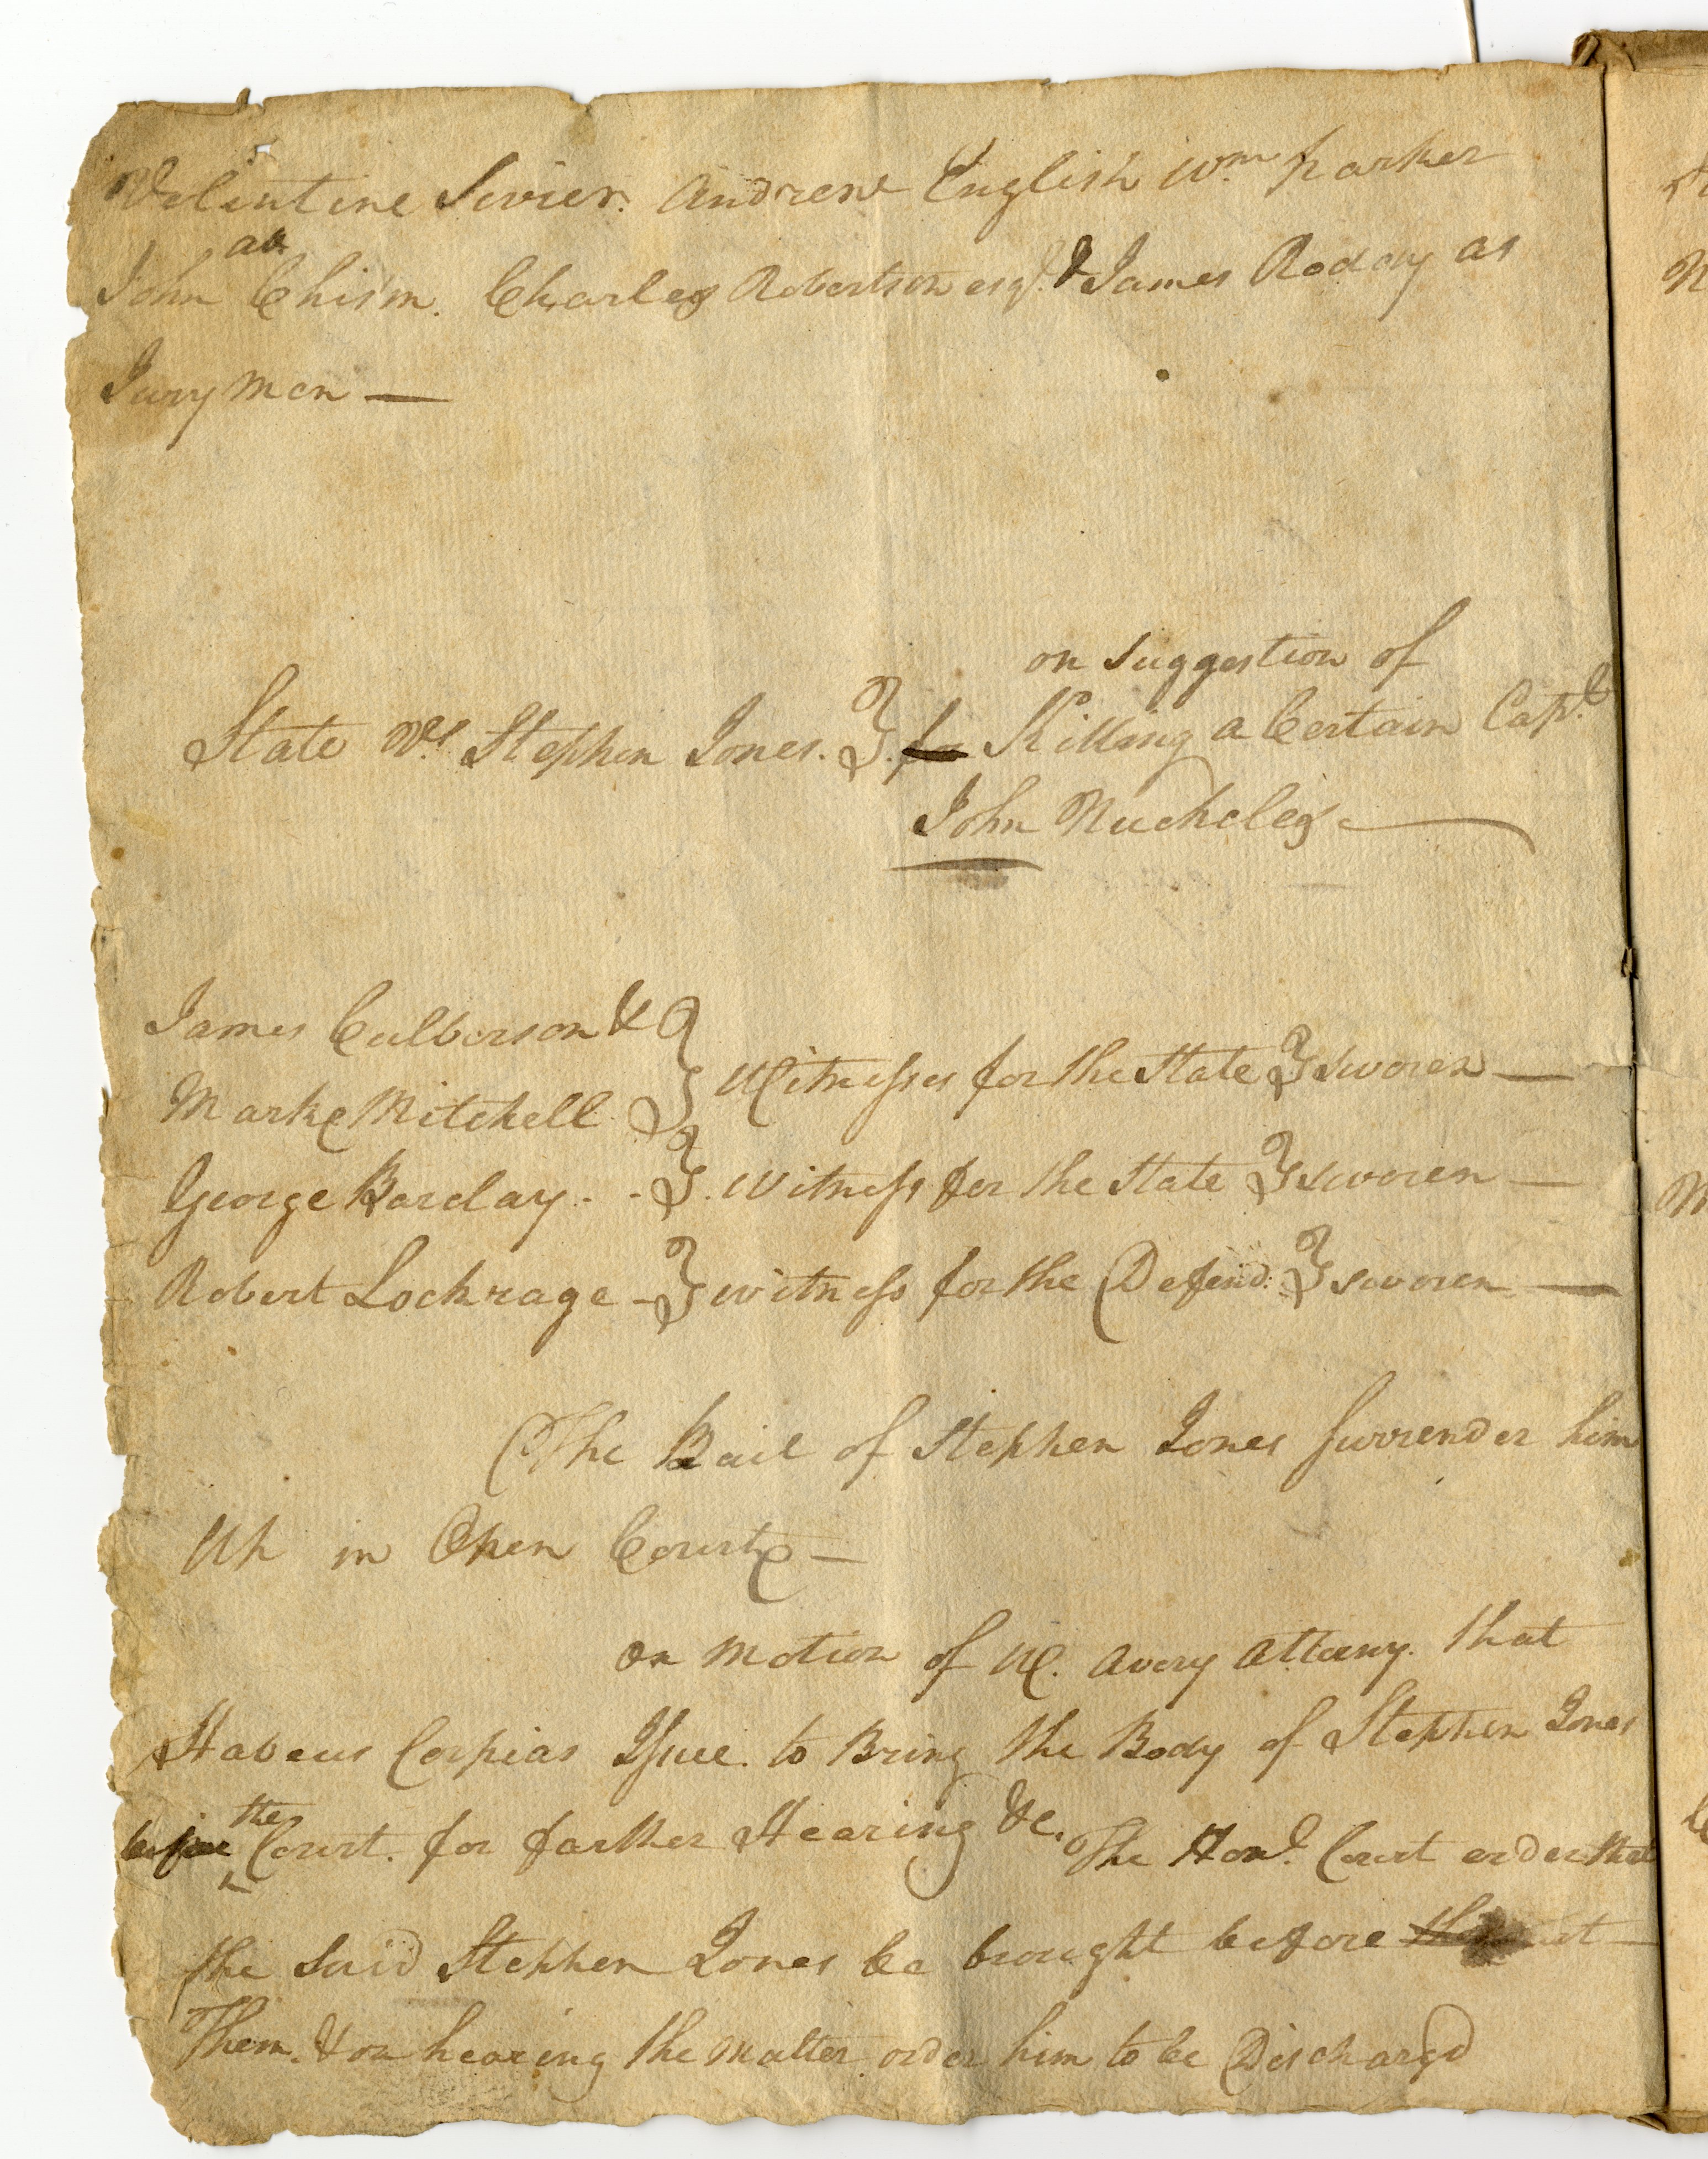 Velintine Sevier. Andrew English Wm parker
ab
John Chism. Charles Robertson esqr. & James Roddy as
Jurymen —
on suggestion of
State Vs. Stephen Jones. } for Killing a Certain Capt.
John Nuckeles —
James Culberson & }
Marke Mitchell } Witnesses for the State } sworen —
George Barclay . - } . Witness for the State } sworen —
Robert Lockrage - } witness for the Defend. } sworen —
The Bail of Stephen Jones Surrender him
Up in Open Court —
on Motion of W. Avery Attorny. that
Habeus Corpias Issue. to Bring the Body of Stephen Jones
before the Court. for farther Hearing &c. The Honl. Court order that
the Said Stephen Jones be brought before
Them. & on hearing the Matter order him to be Dischargd